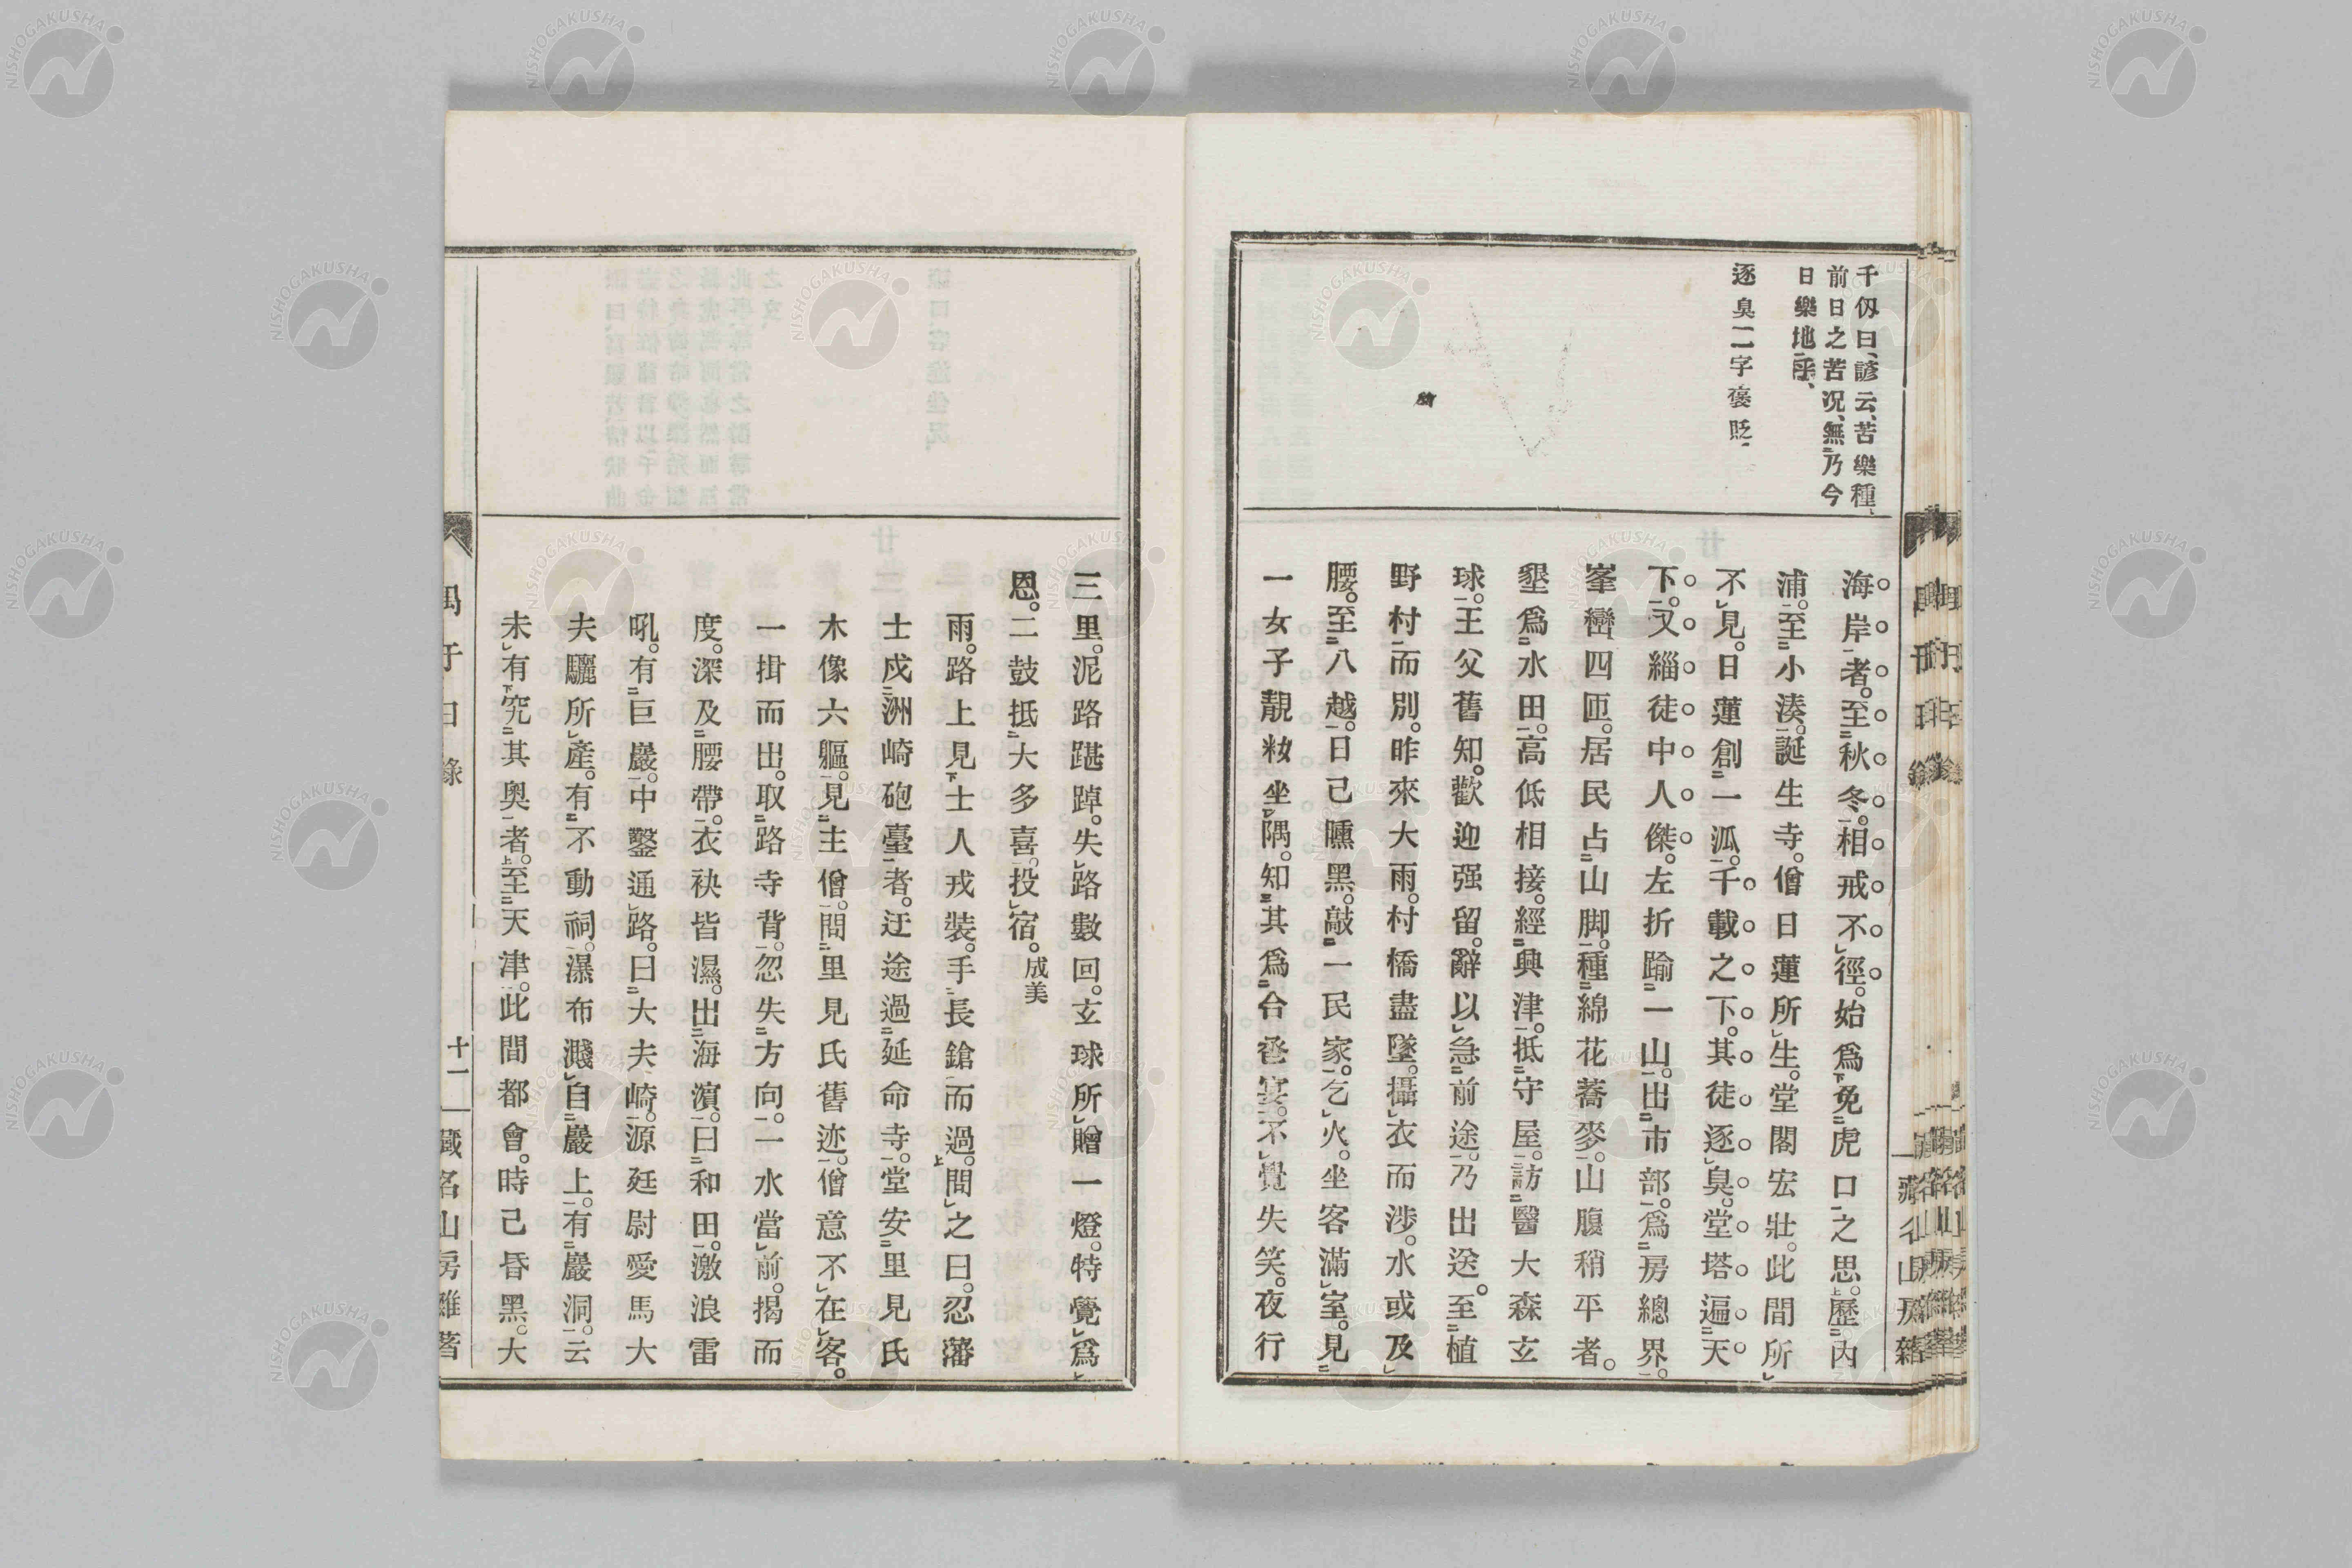 千仭曰、諺云、苦樂種、
前日之苦况、無乃今
日樂地乎、
逐臭二字褒貶、
海岸者。至秋冬。相戒不徑。始爲免虎口之思。歷內
浦。至小湊。誕生寺。僧日蓮所生。堂閣宏壯。此間所
不見。日蓮創一派。千載之下。其徒逐臭。堂塔遍天
下。又緇徒中人傑。左折踰一山。出市部。爲房總界。
峯巒四匝。居民占山脚。種綿花蕎麥。山腹稍平者。
墾爲水田。高低相接。經興津。抵守屋。訪醫大森玄
球。王父舊知。歡迎强留。辭以急前途。乃出送。至植
野村而別。昨來大雨。村橋盡墜。攝衣而涉。水或及
腰。至八越。日已曛黑。敲一民家。乞火。坐客滿室。見
一女子靚粧坐隅。知其爲合卺宴。不覺失笑。夜行
三里。泥路踸踔。失路數回。玄球所贈一燈。特覺爲
恩。二鼓抵大多喜。投宿。成美
雨。路上見士人戎裝。手長鎗而過。間之曰。忍藩
士戍洲崎砲臺者。迂途過延命寺。堂安里見氏
木像六軀。見主僧。問里見氏舊迹。僧意不在客。
一揖而出。取路寺背。忽失方向。一水當前。揭而
度。深及腰帶。衣袂皆濕。出海濵。曰和田。激浪雷
吼。有巨巖。中鑿通路。曰大夫崎。源廷尉愛馬大
夫驪所產。有不動祠。瀑布濺自巖上。有巖洞。云
未有究其奥者。至天津。此間都會。時已昏黑。大
十一
藏名山房雜著